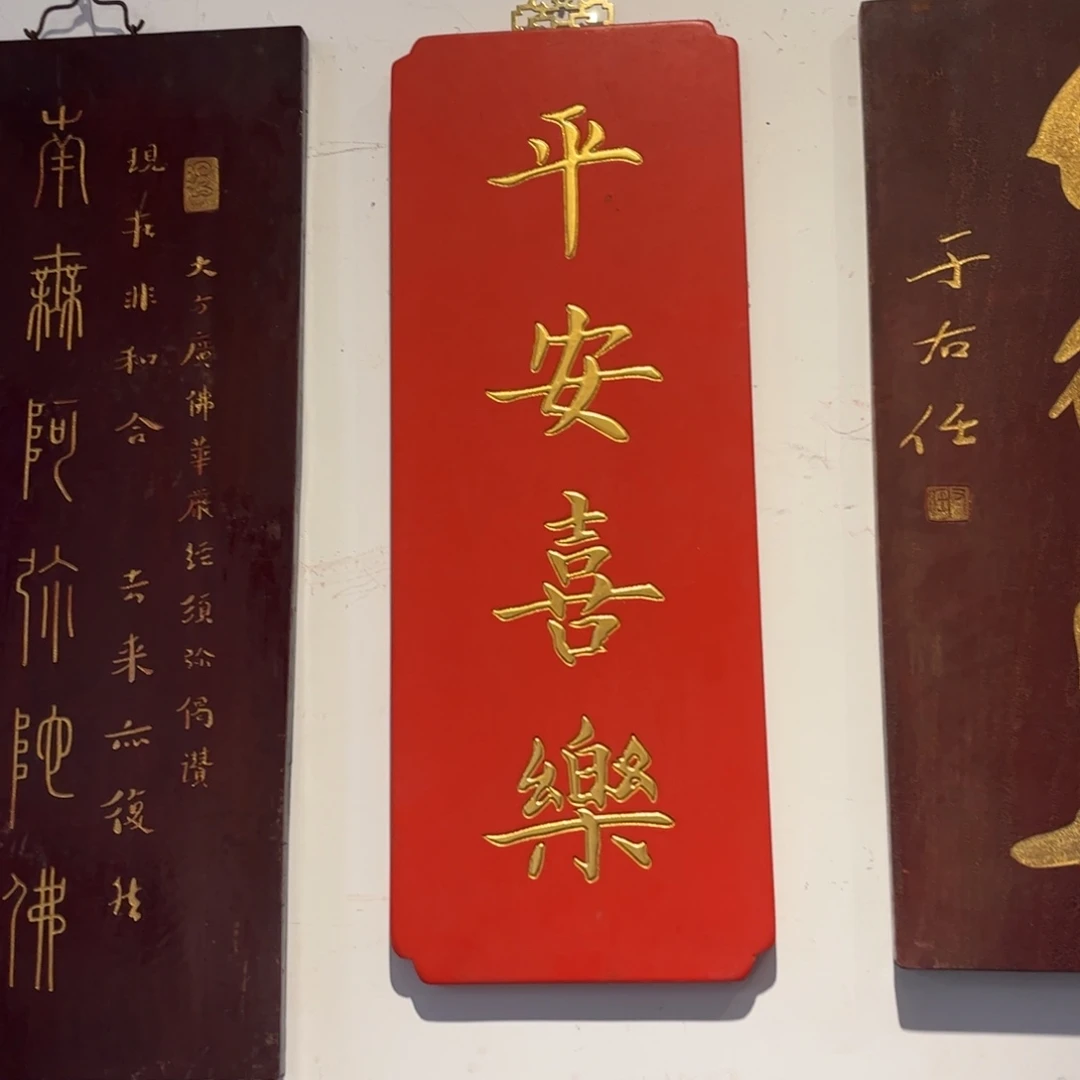 南無阿彌陀佛
現在非和合 去来亦復然
大方廣佛華嚴經須弥偈讚
平安喜樂
于右任